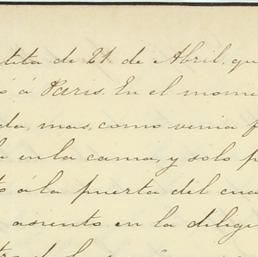 tita de 21 de Abril, qu
ó á Paris. En el mome
da, mas, como venia f
a en la cama, y solo p
ó á la puerta del cua
asiento en la dilige